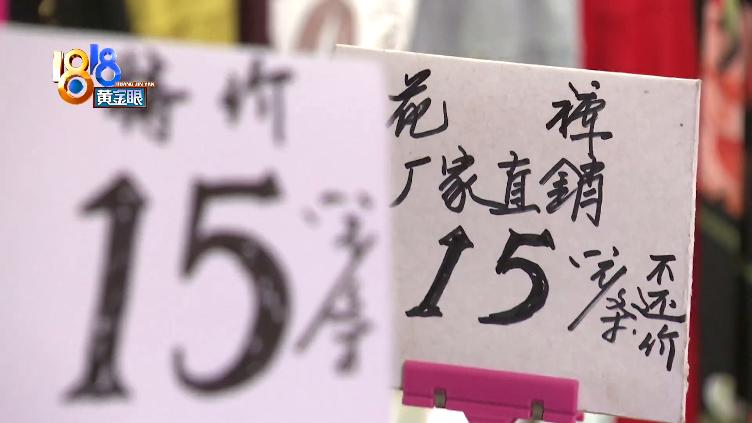 1818
黄金眼
特价
15元/
花裤
厂家直銷
15元/条
不还价